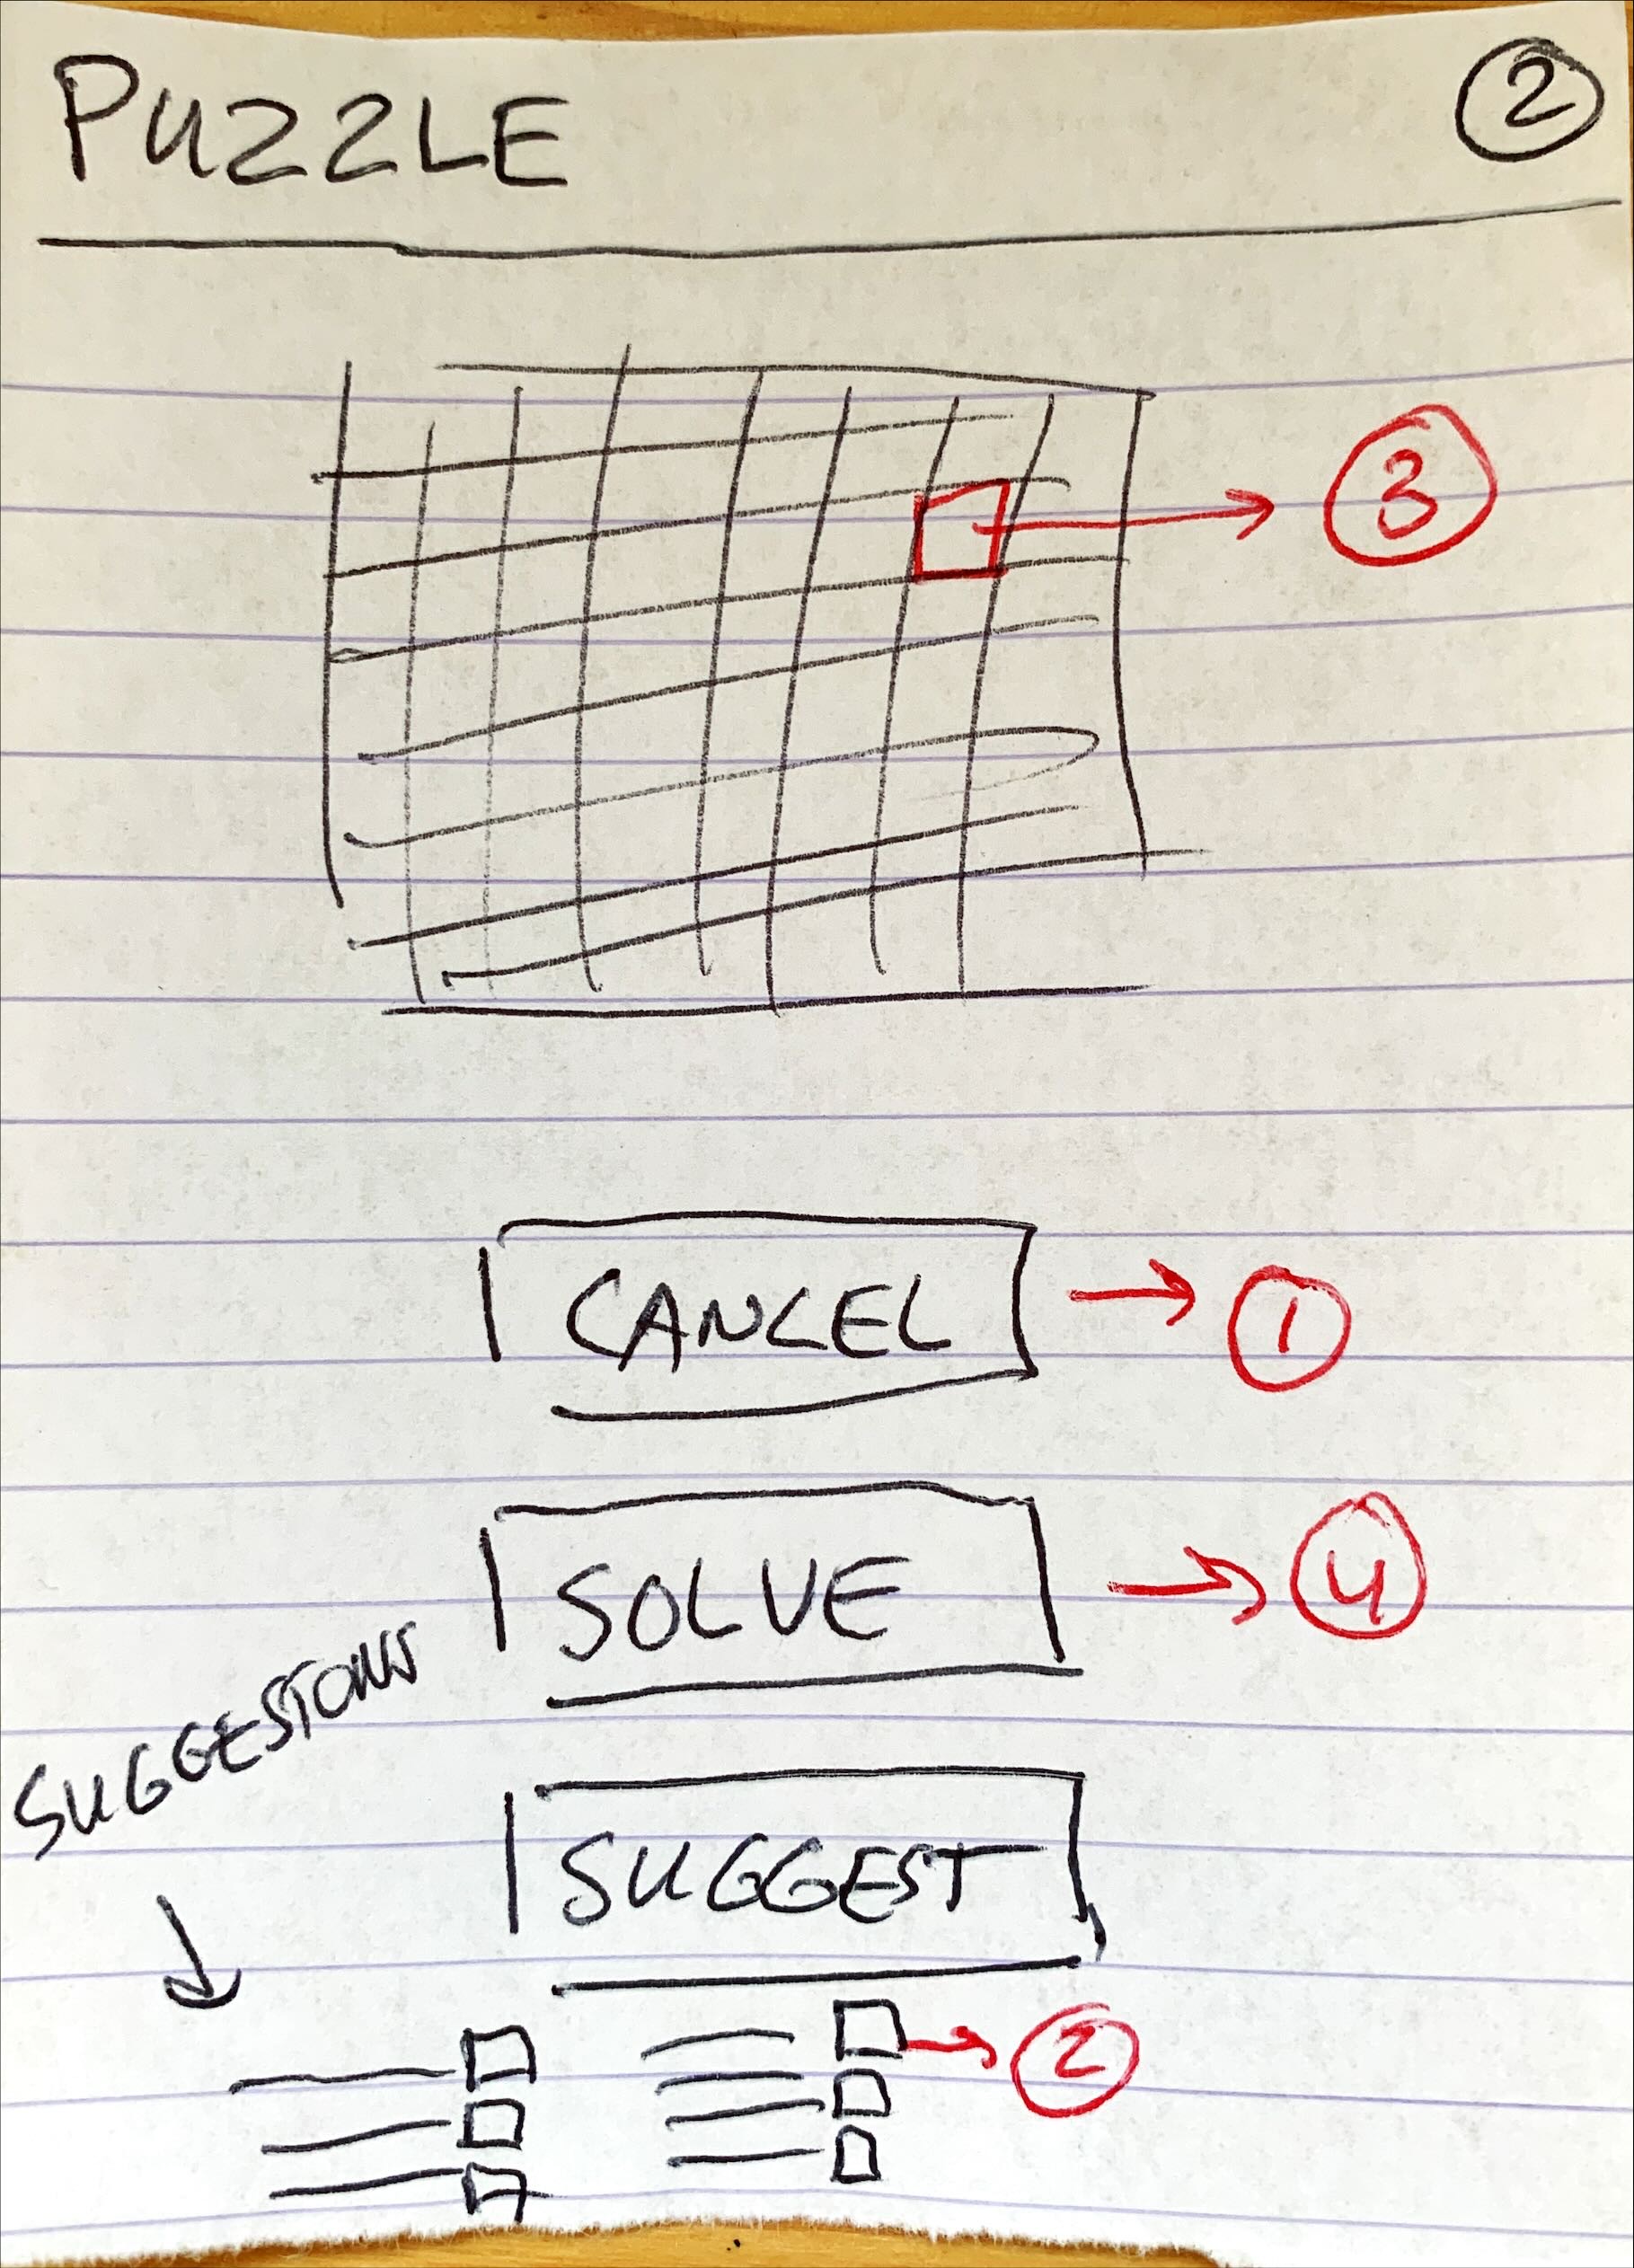 PUZZLE 2
3
CANCEL 1
SOLVE 4
SUGGESTONS
SUGGEST
2